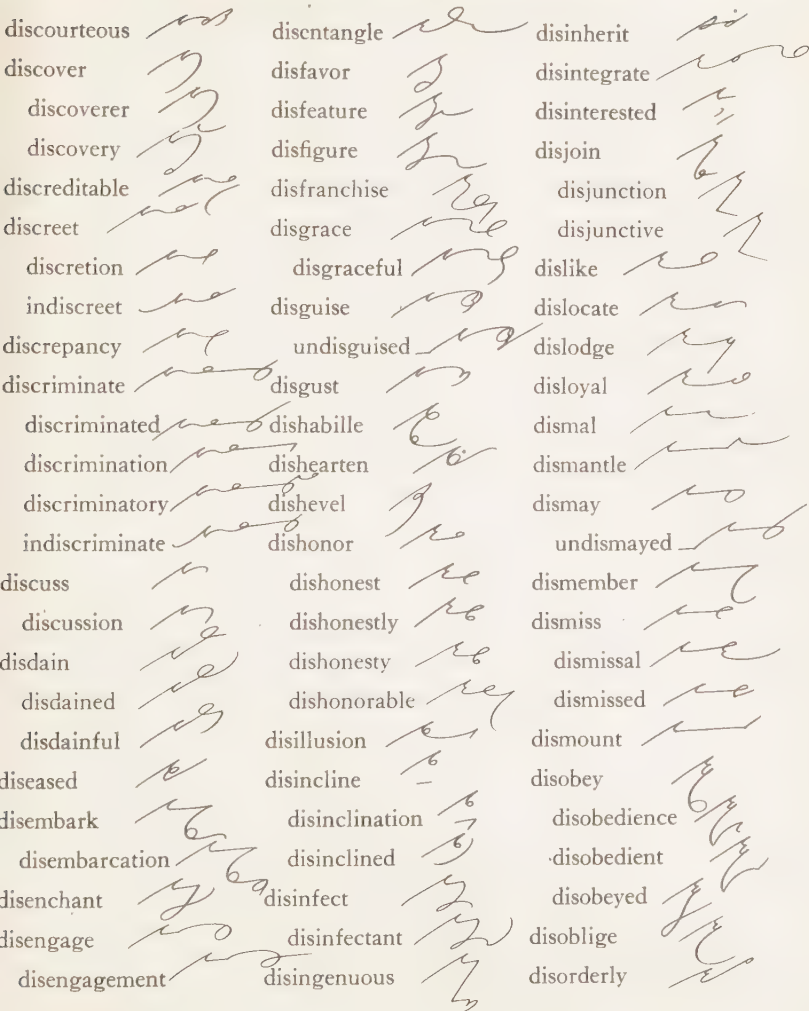 discourteous
discover
discoverer
discovery
discreditable
discreet
discretion
indiscreet
discrepancy
discriminate
discriminated
discrimination
discriminatory
indiscriminate
discuss
discussion
disdain
disdained
disdainful
diseased
disembark
disembarcation
disenchant
disengage
disengagement
disentangle
disfavor
disfeature
disfigure
disfranchise
disgrace
disgraceful
disguise
undisguised
disgust
dishabille
dishearten
dishevel
dishonor
dishonest
dishonestly
dishonesty
dishonorable
disillusion
disincline
disinclination
disinclined
disinfect
disinfectant
disingenuous
disinherit
disintegrate
disinterested
disjoin
disjunction
disjunctive
dislike
dislocate
dislodge
disloyal
dismal
dismantle
dismay
undismayed
dismember
dismiss
dismissal
dismissed
dismount
disobey
disobedience
disobedient
disobeyed
disoblige
disorderly